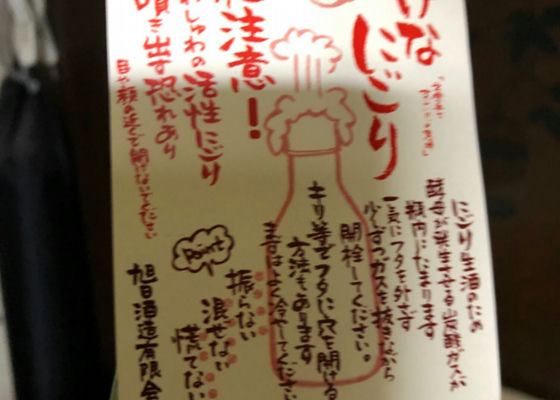 げな
にごり
注意！
しゅわの活性にごり
噴き出す恐れあり
目や顔の近くで開けないでください
にごり生酒のため
酵母が発生させる炭酸ガスが
瓶内にたまります
一気にフタを外さず
少しずつガスを抜きながら
開栓してください。
キリ等でフタに穴を開ける
方法もあります
まずはよく冷やしてください
Point
振らない
混ぜない
慌てない
旭日酒造有限会